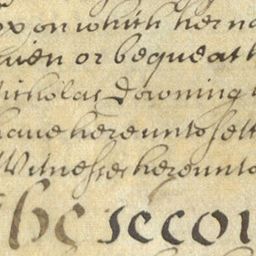 upon which her na
given or bequeath
Nicholas Downing
have hereunto sett
Witnesses hereunto
The secon